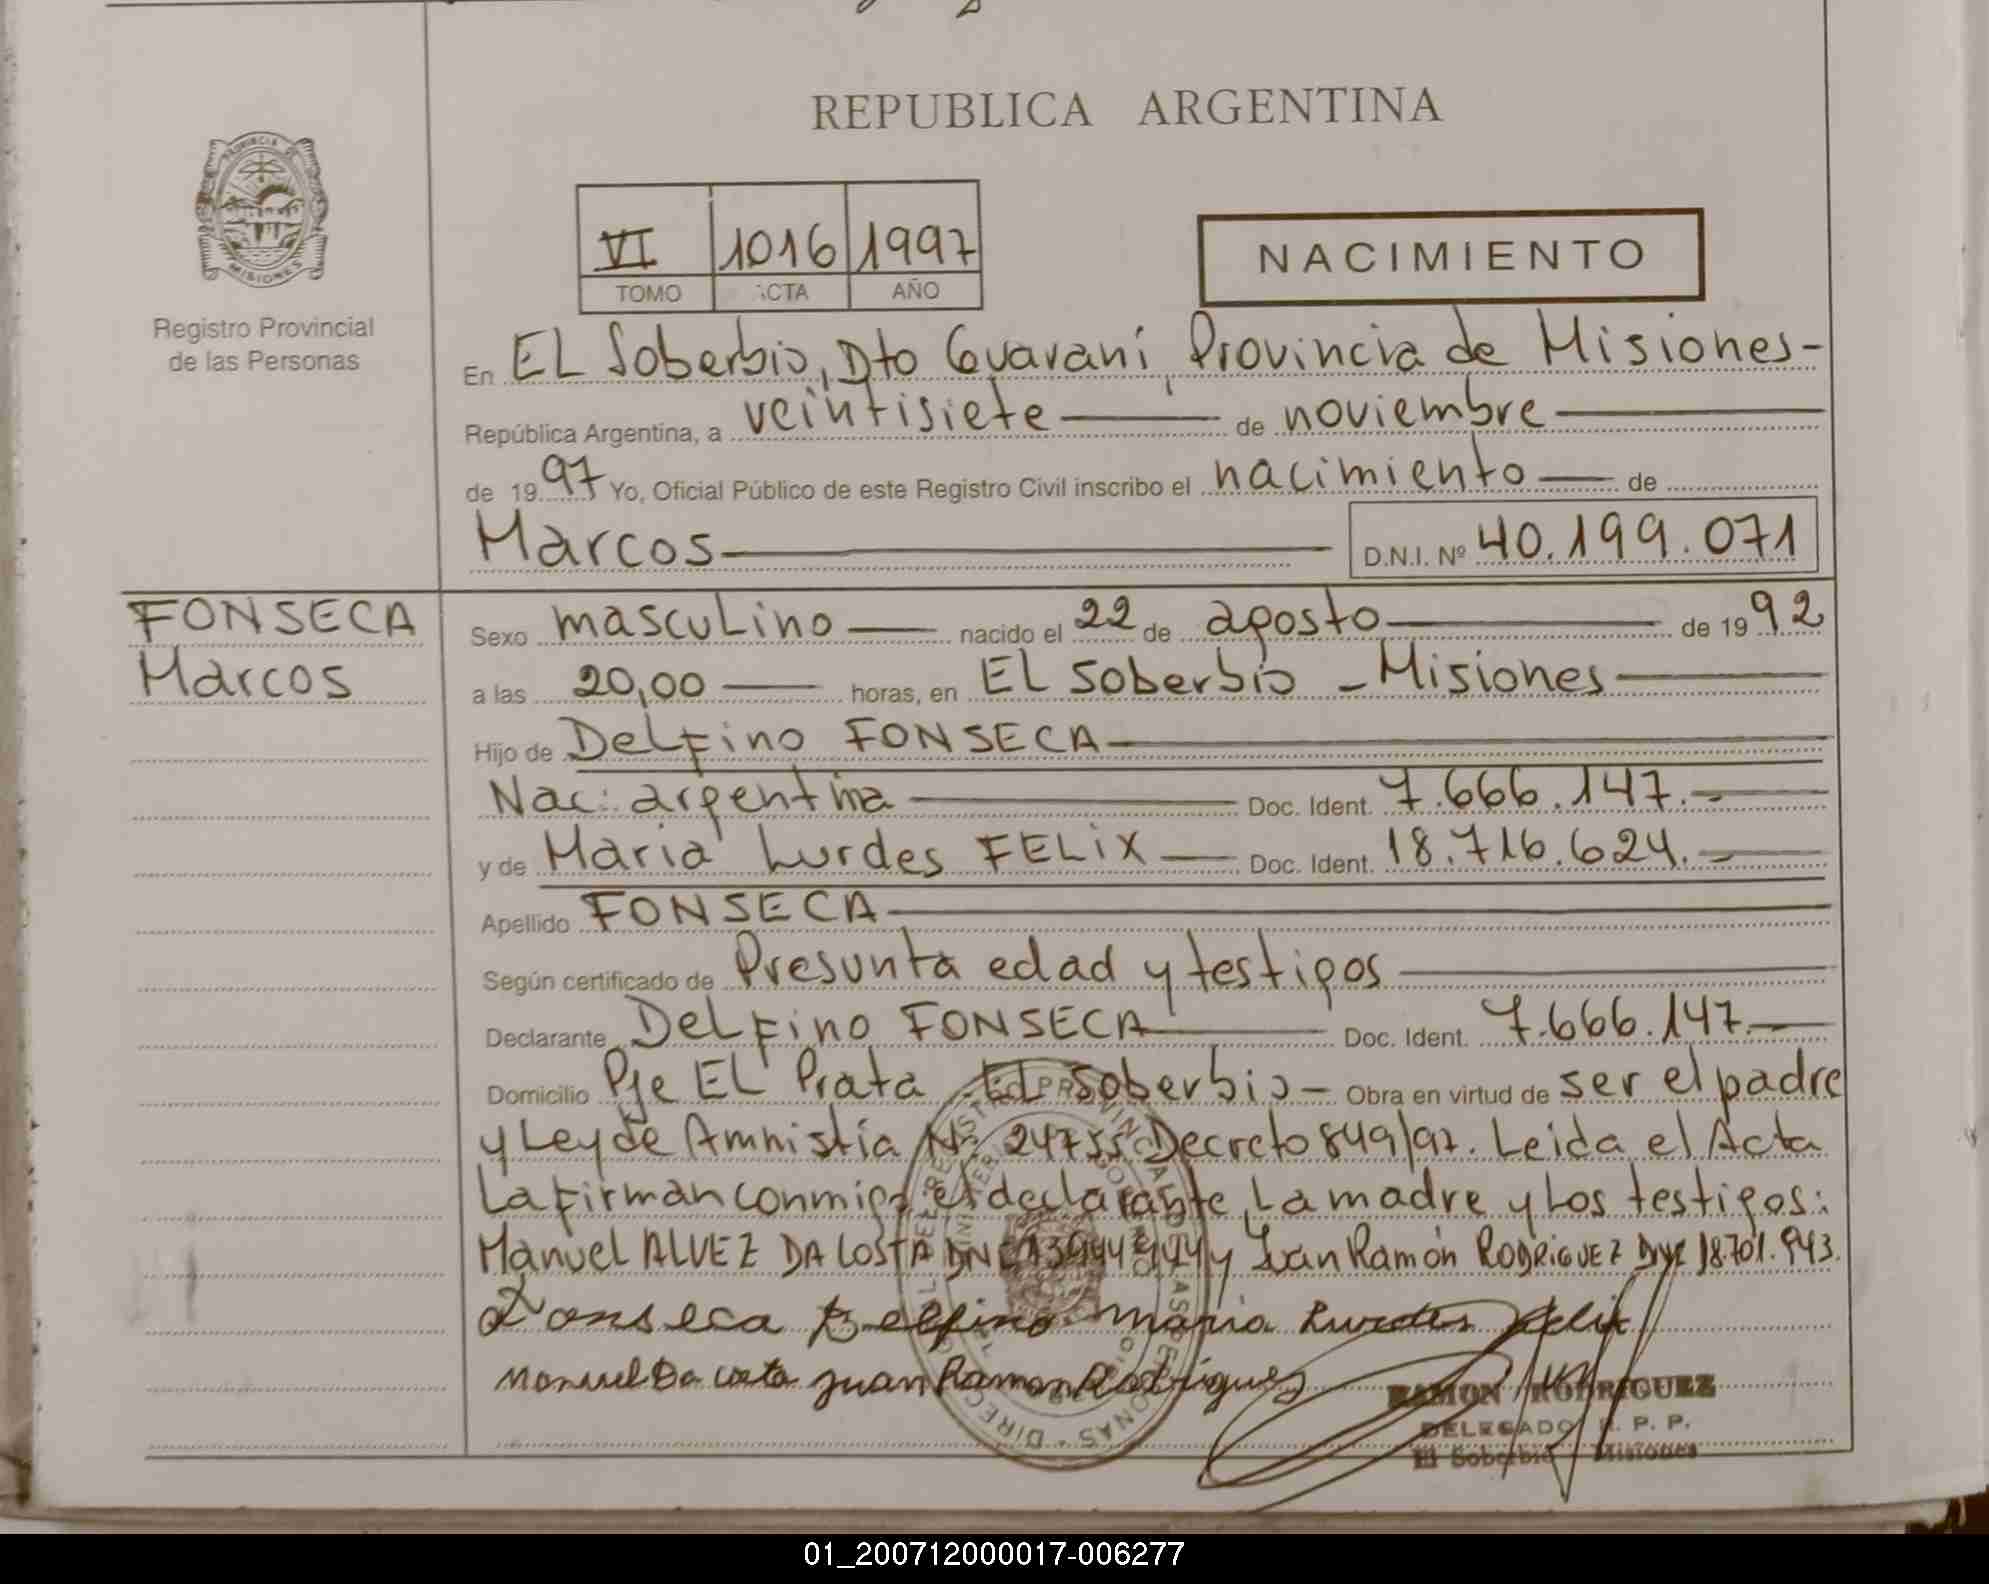 REPUBLICA ARGENTINA
PROVINCIA DE
MISIONES
Registro Provincial
de las Personas
VI 1016 1997
TOMO ACTA AÑO
NACIMIENTO
En EL Soberbio, Dto Guaraní, Provincia de Misiones-
República Argentina, a veintisiete de noviembre
de 1997 Yo, Oficial Público de este Registro Civil inscribo el nacimiento de
Marcos D.N.I. Nº 40.199.071
FONSECA
Marcos
Sexo masculino nacido el 22 de agosto de 1992
a las 20,00 horas, en EL Soberbio - Misiones
Hijo de Delfino FONSECA
Nac: argentina Doc. Ident. 7.666.147.-
y de Maria Lurdes FELIX Doc. Ident. 18.716.624.-
Apellido FONSECA
Según certificado de Presunta edad y testigos
Declarante Delfino FONSECA Doc. Ident. 7.666.147.-
Domicilio Pje EL Prata - EL Soberbio - Obra en virtud de ser el padre
y Ley de Amnistía Nº 24755 Decreto 849/97. Leida el Acta
La firman conmigo el declarante, La madre y Los testigos:
Manuel ALVEZ DA COSTA DNI y Juan Ramón RODRIGUEZ DNI 18.701.943.
Fonseca Delfino Maria Lurdes Felix
Manuel Da Costa Juan Ramon Rodrigues
RAMON RODRIGUEZ
DELEGADO R. P. P.
El Soberbio Misiones
01_200712000017-006277